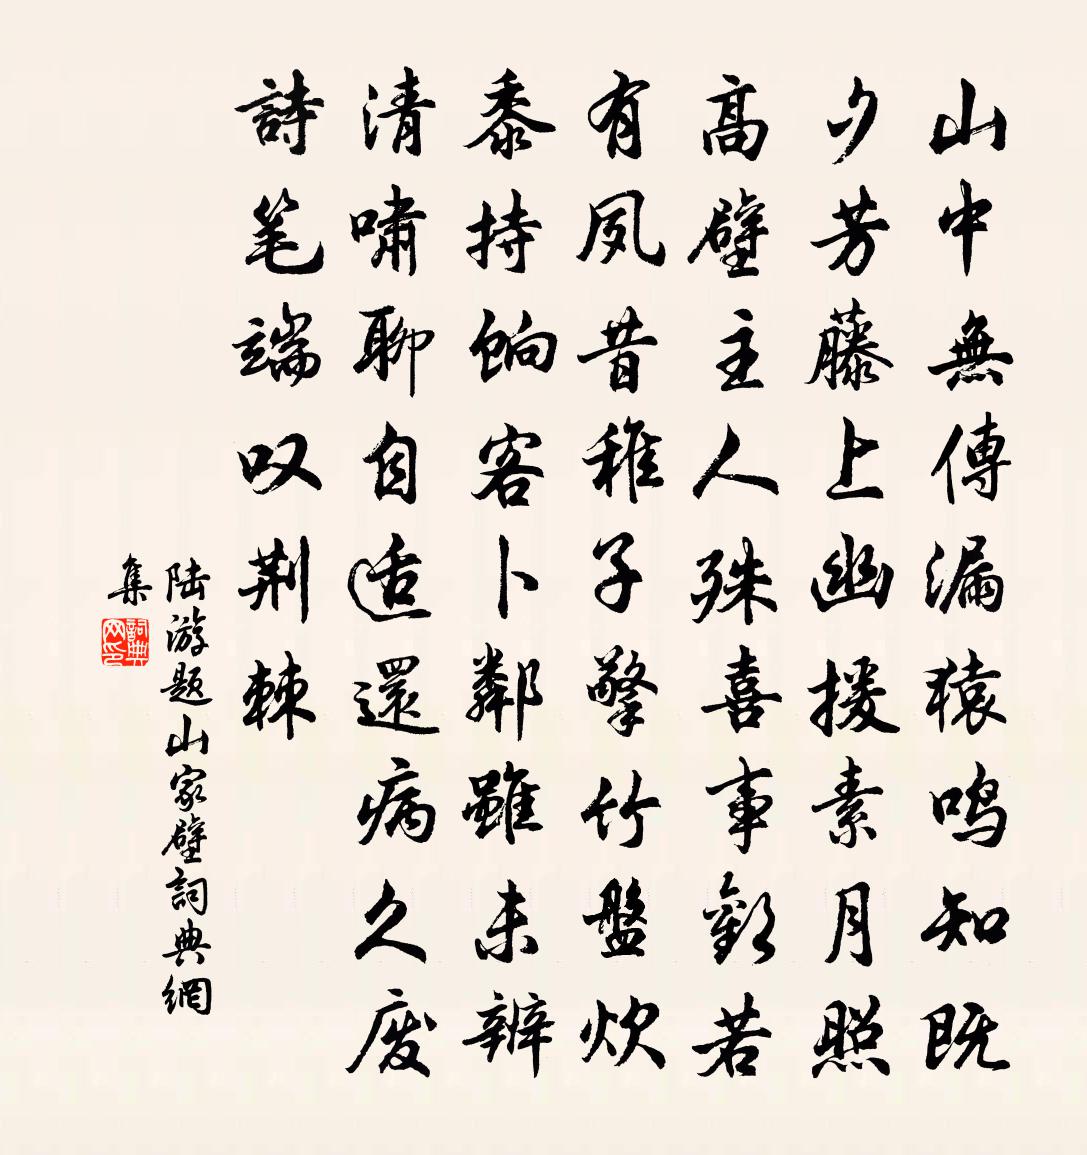 山中無傳漏猿鳴知既
夕芳藤上幽援素月照
高壁主人殊喜事歡若
有夙昔稚子擎竹盤炊
黍持餉客卜鄰雖未辦
清嘯聊自适還病久废
詩笔端叹荆棘
陆游题山家壁詞典網
集
詞典网印